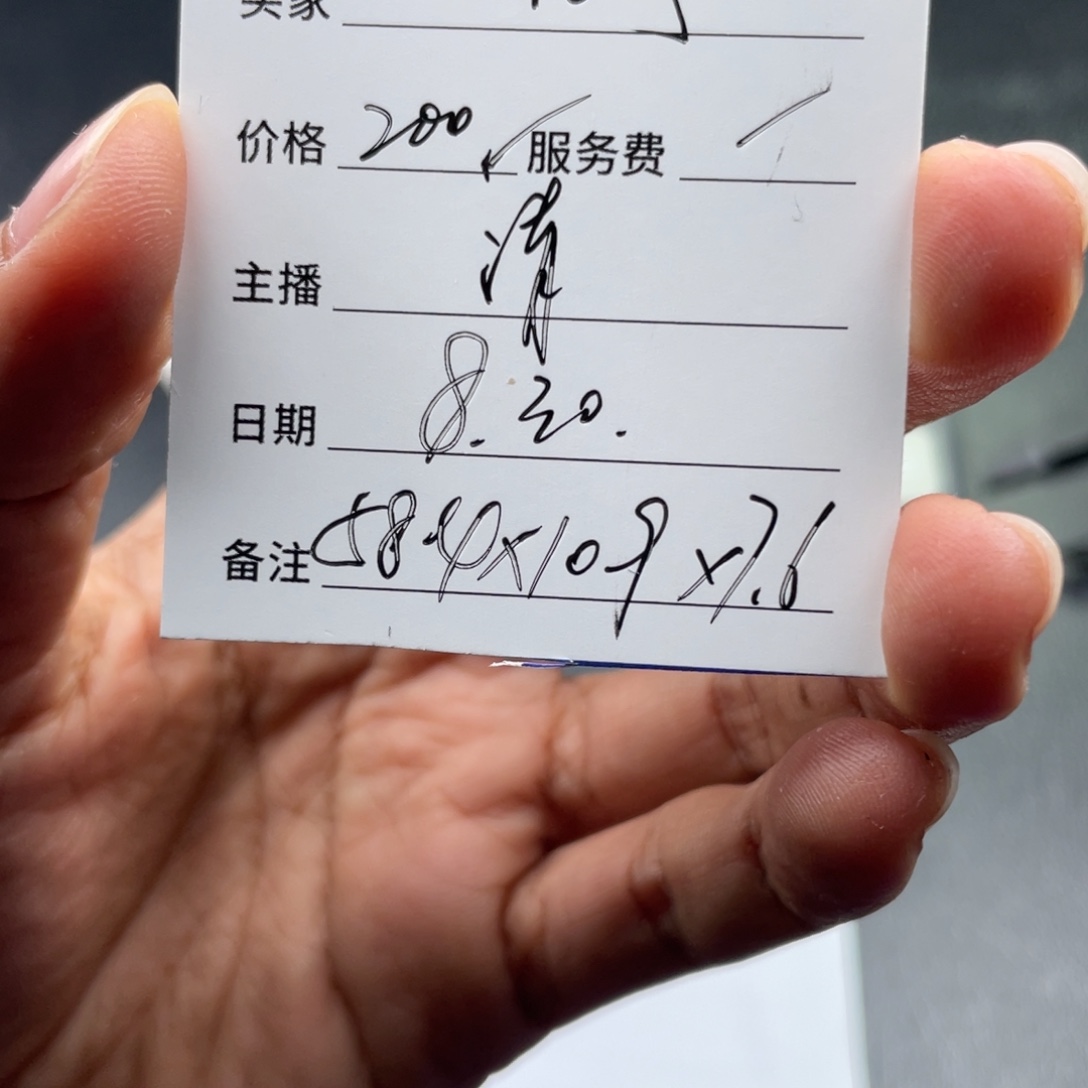 价格 200 服务费 /
主播 清
日期 8.30.
备注 58.4×10.9×7.6